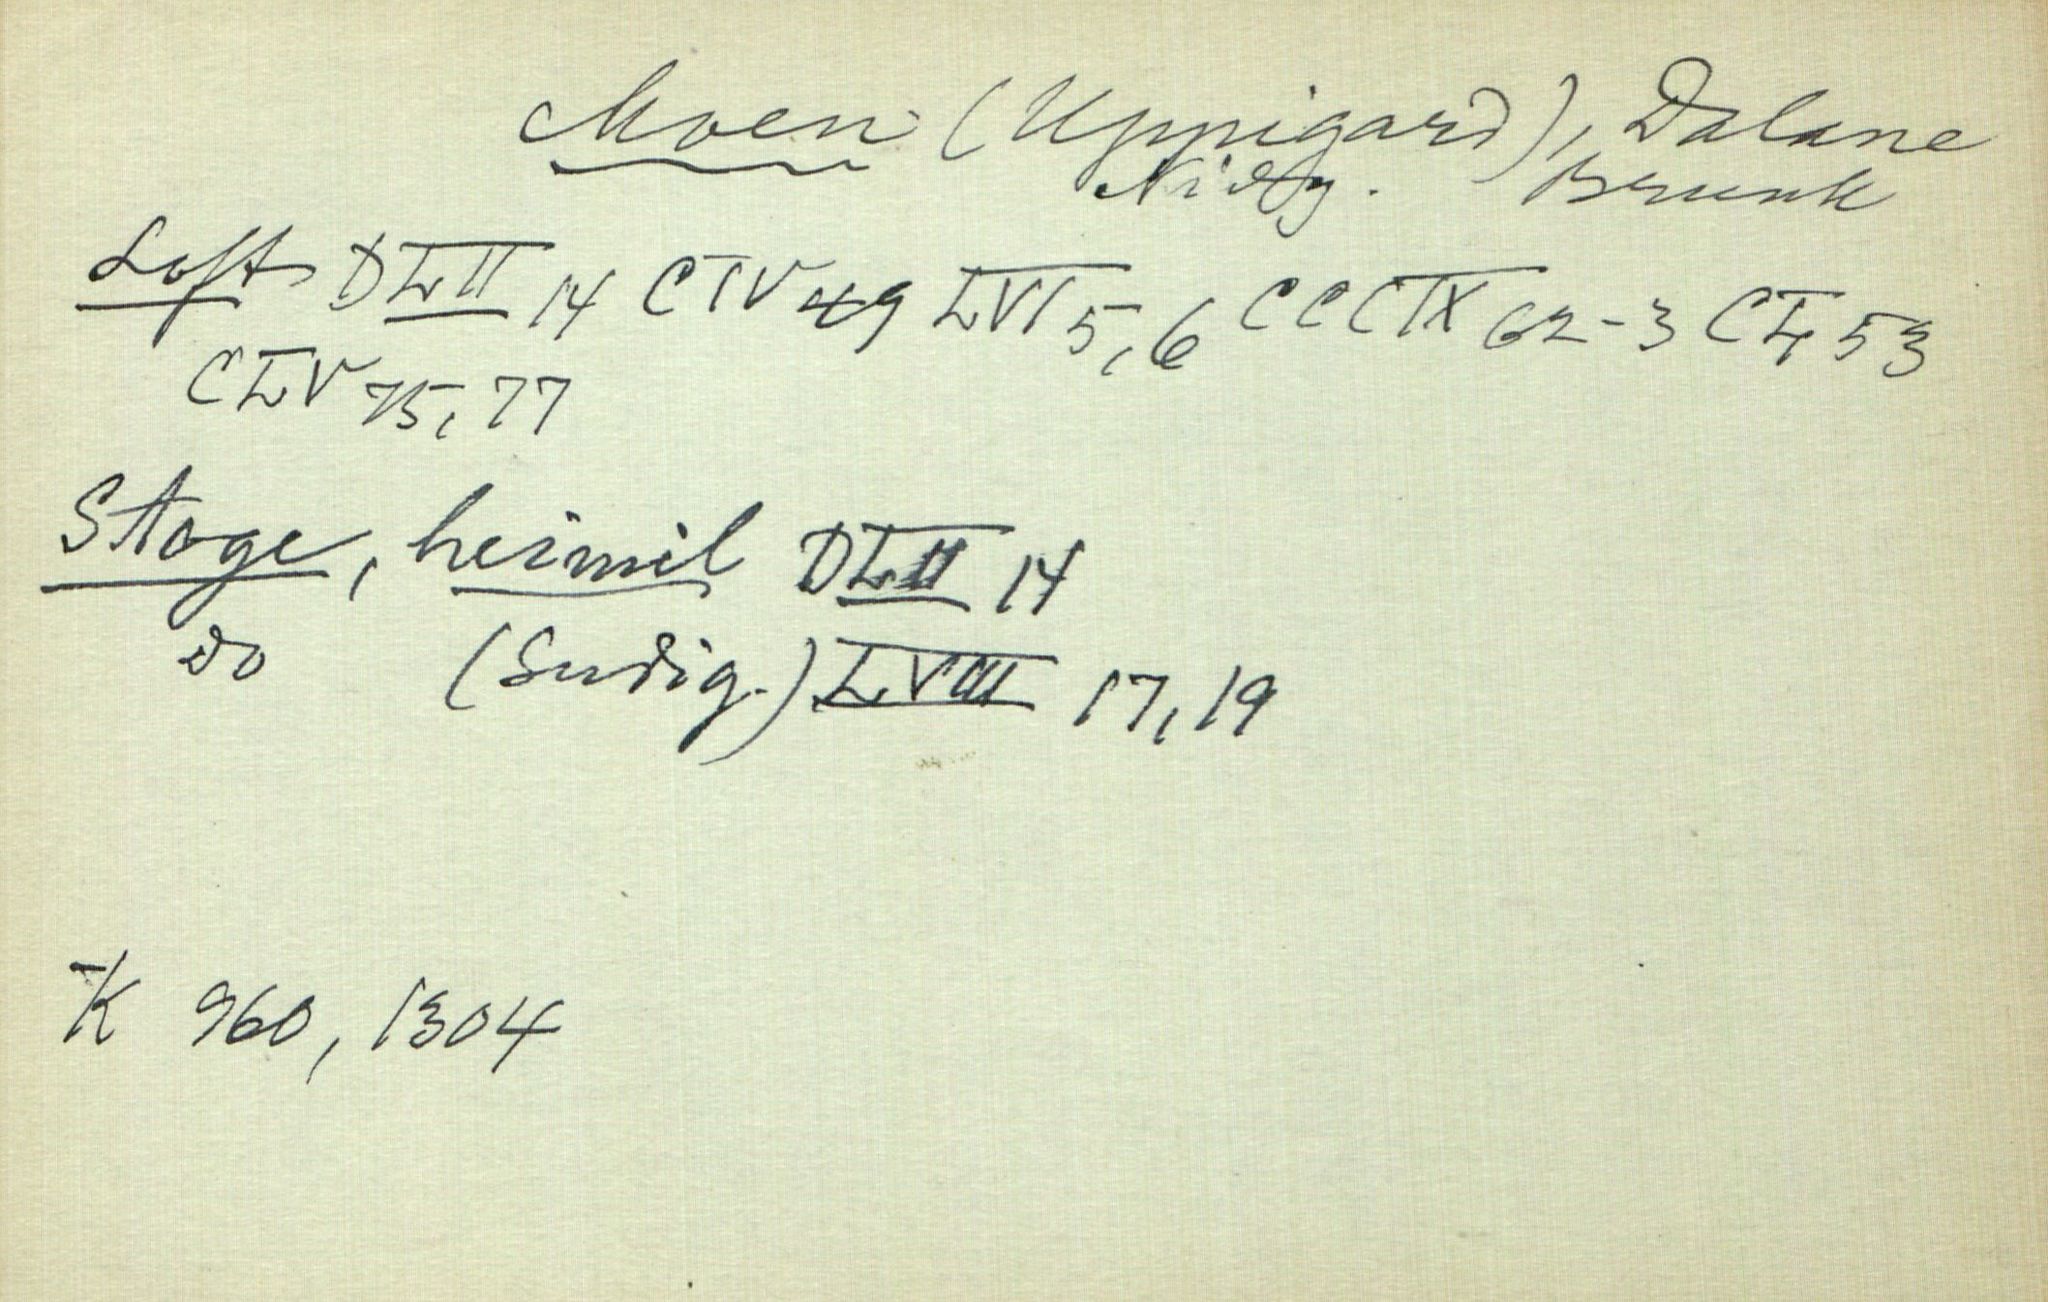 Moen (Uppigard), Dalane
Nidg. Brunk
Loft DLII 14 CIV 49 LVI 5,6 CCCIX 62-3 CL 53
CLV 75,77
Stoge, heimil DLII 14
do (Sudig.) LVIII 17,19
K 960, 1304